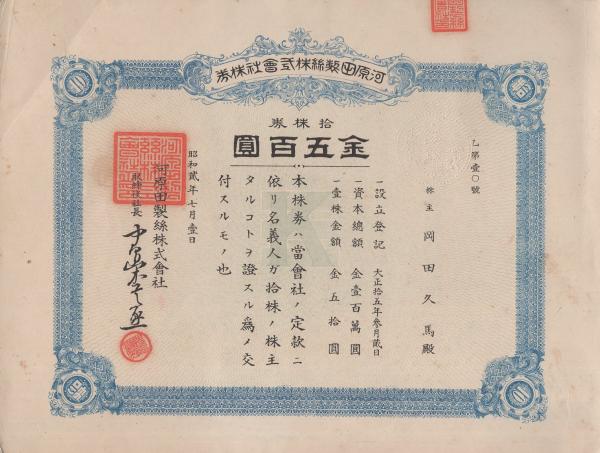 河原田製絲株式會社株券
拾株券
金五百圓
乙第壹〇號
株主 岡田久馬殿
一設立登記 大正拾五年参月貳日
一資本總額 金壹百萬圓
一壹株金額 金五拾圓
本株券ハ當會社ノ定款ニ
依リ名義人ガ拾株ノ株主
タルコトヲ證スル爲メ交
付スルモノ也
昭和貳年七月壹日
河原田製絲株式會社
取締役社長
K